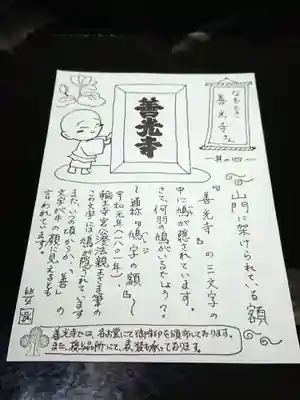 なるほど
善光寺さん
―其の四―
善光寺
山門に架けられている額
『善光寺』の三文字の
中に鳩が隠されています。
さて、何羽の鳩がいるでしょう？
～通称『鳩字の額』～
享和元年(一八〇一年)、
輪王寺宮公澄法親王筆の
この文字には鳩が隠れています
またいつの頃からか、「善」の
文字が牛の顔に見えるとも
言われています。
善光寺では、各お堂にて御朱印を頒布しております。
また、授与品所にて、表装も承っております。